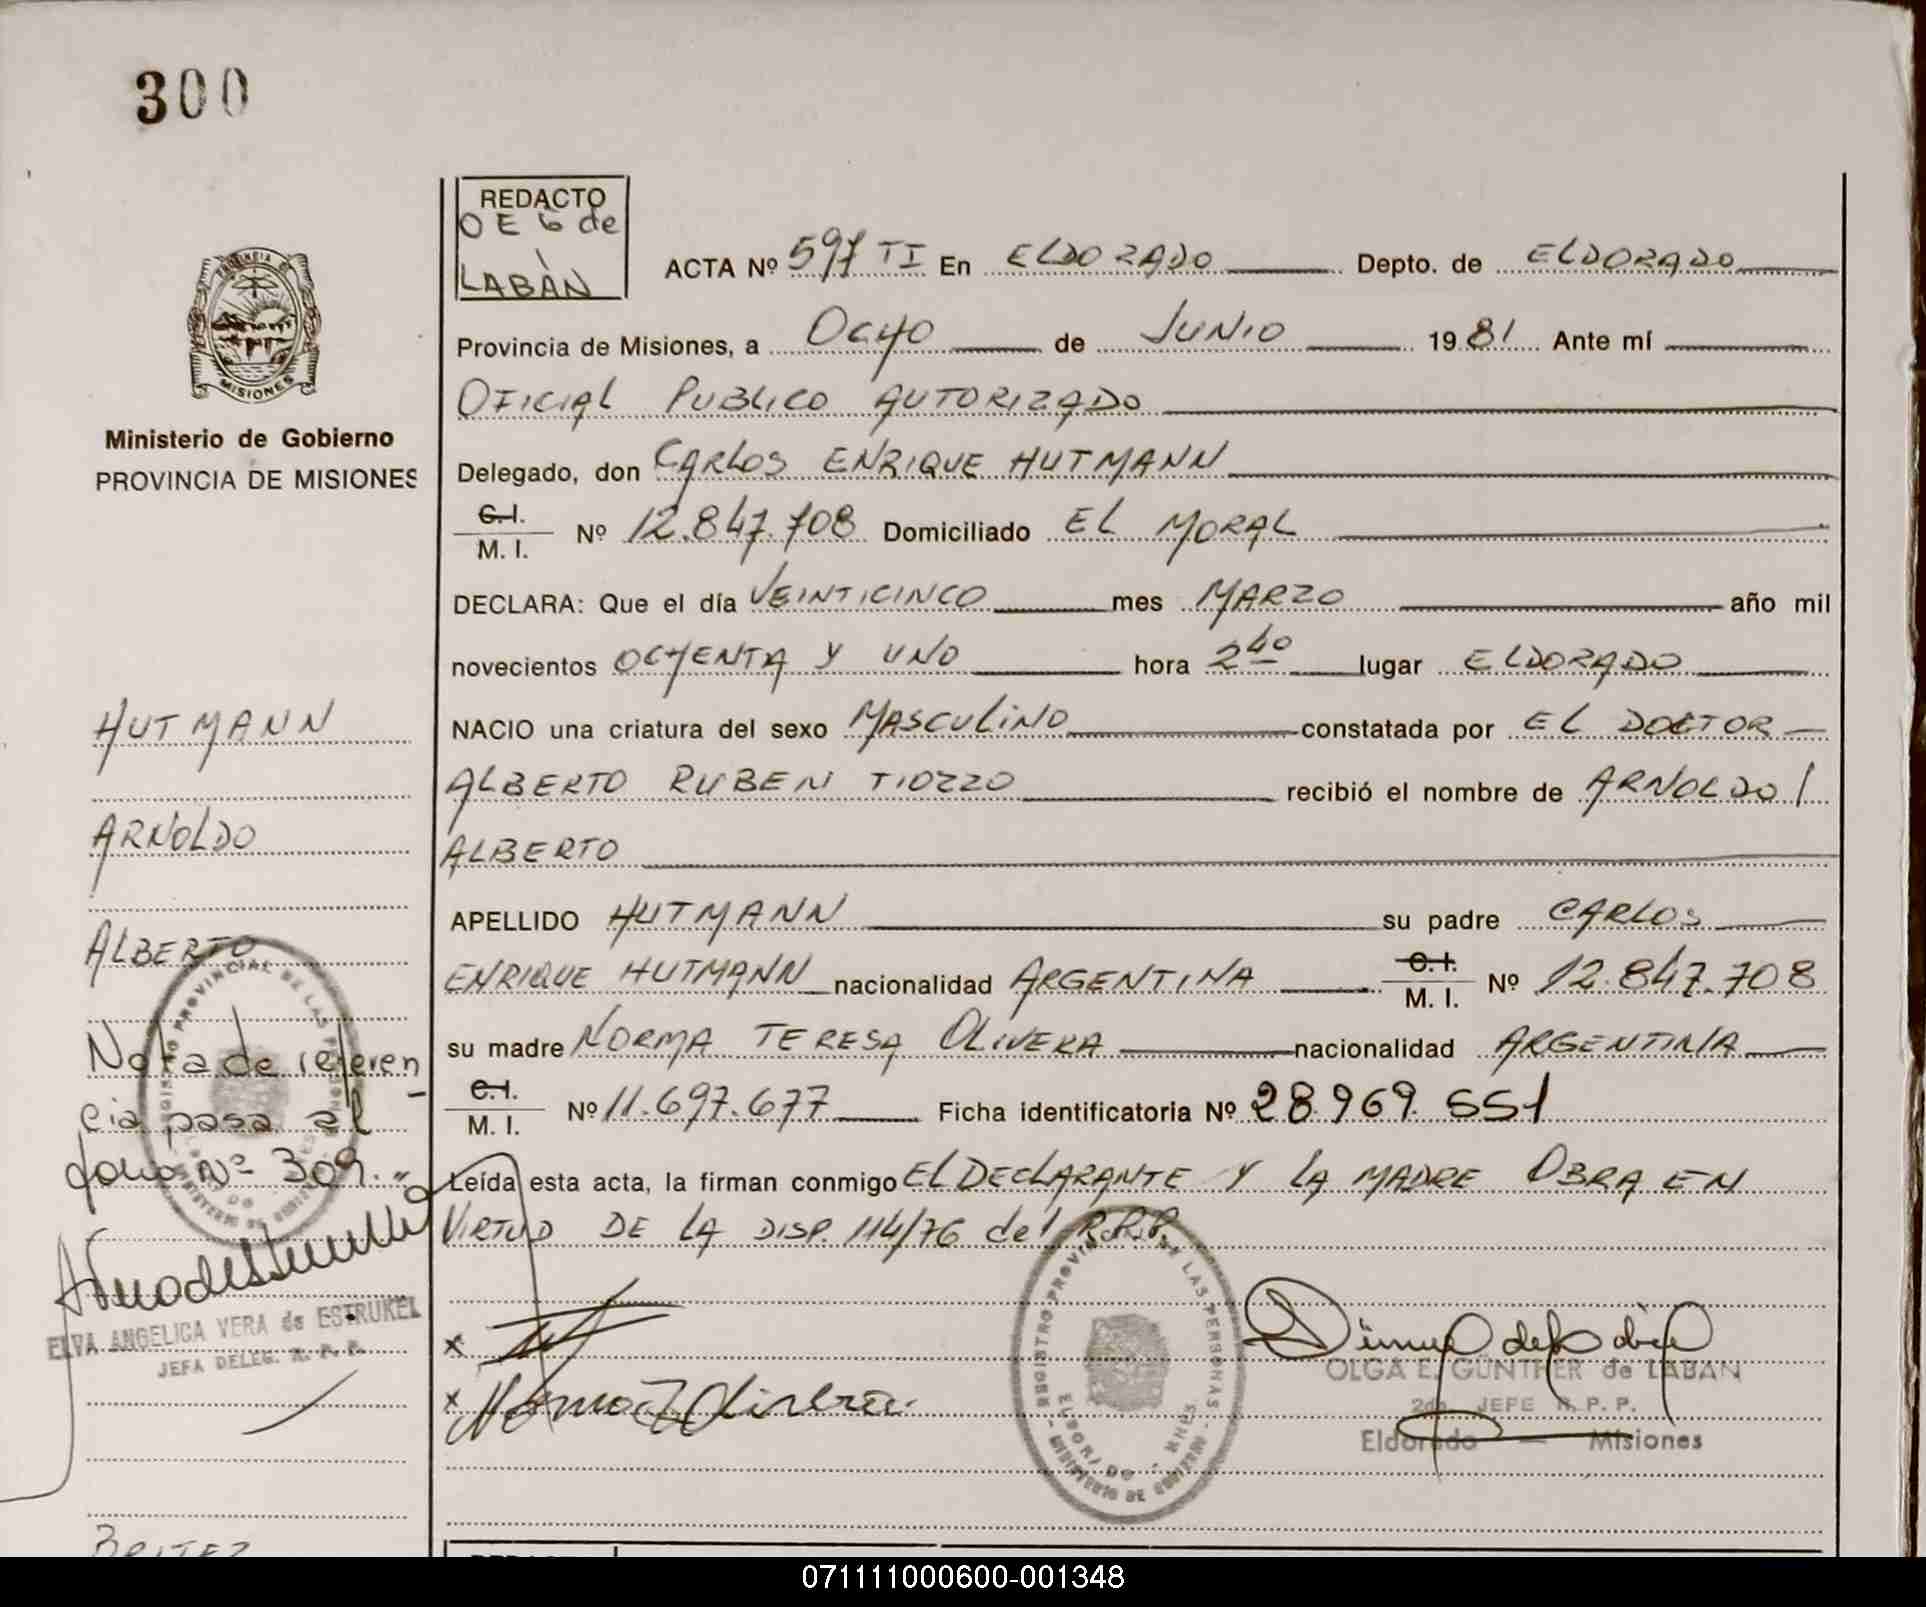 300
REDACTO
O E G de
LABAN
ACTA Nº 597 TI En ELDORADO Depto. de ELDORADO
Provincia de Misiones, a OCHO de JUNIO 1981 Ante mí
OFICIAL PUBLICO AUTORIZADO
Delegado, don CARLOS ENRIQUE HUTMANN
C.I.
M. I. Nº 12.847.708 Domiciliado EL MORAL
DECLARA: Que el día VEINTICINCO mes MARZO año mil
novecientos OCHENTA Y UNO hora 2 40 lugar ELDORADO
NACIO una criatura del sexo MASCULINO constatada por EL DOCTOR
ALBERTO RUBEN TIOZZO recibió el nombre de ARNOLDO
ALBERTO
APELLIDO HUTMANN su padre CARLOS
ENRIQUE HUTMANN nacionalidad ARGENTINA C.I. M. I. Nº 12.847.708
su madre NORMA TERESA OLIVERA nacionalidad ARGENTINA
C.I.
M. I. Nº 11.697.677 Ficha identificatoria Nº 28.969.551
Leída esta acta, la firman conmigo EL DECLARANTE Y LA MADRE OBRA EN
VIRTUD DE LA DISP. 114/76 del R.P.P.
OLGA E. GÜNTHER de LABAN
2da. JEFE R. P. P.
Eldorado — Misiones
PROVINCIA DE
MISIONES
Ministerio de Gobierno
PROVINCIA DE MISIONES
HUTMANN
ARNOLDO
ALBERTO
Nota de referen
cia pasa al
folio Nº 309.
ELVA ANGELICA VERA de ESTRUKEL
JEFA DELEG. R. P. P.
BRITEZ
071111000600-001348